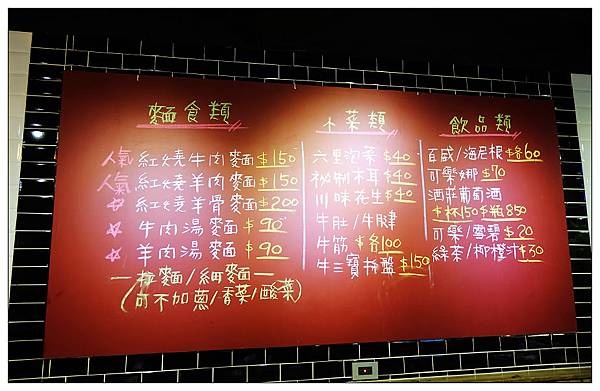 麵食類
人氣 紅燒牛肉麵 $150
人氣 紅燒羊肉麵 $150
☆ 紅燒羊骨麵 $200
★ 牛肉湯麵 $90
★ 羊肉湯麵 $90
—拉麵/細麵—
(可不加蔥/香菜/酸菜)
小菜類
六里泡菜 $40
祕制木耳 $40
川味花生 $40
牛肚/牛腱
牛筋 $各100
牛三寶拚盤 $150
飲品類
百威/海尼根 $各60
可樂娜 $70
酒莊葡萄酒
$杯150 $瓶850
可樂/雪碧 $20
綠茶/柳橙汁 $30